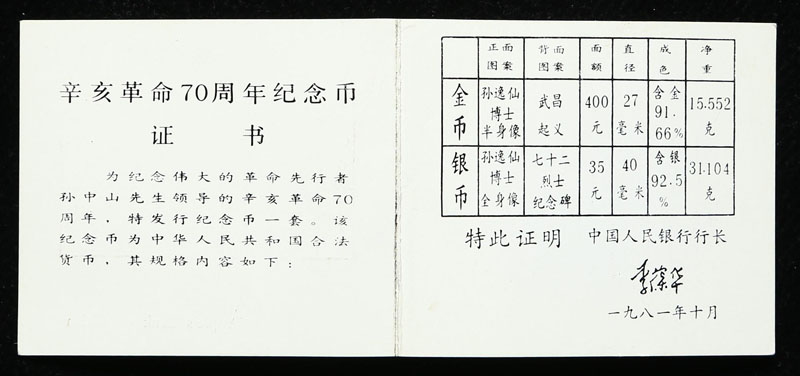 辛亥革命70周年纪念币
证 书
为纪念伟大的革命先行者
孙中山先生领导的辛亥革命70
周年，特发行纪念币一套。该
纪念币为中华人民共和国合法
货币，其规格内容如下：
正面图案 背面图案 面额 直径 成色 净重
金币 孙逸仙博士半身像 武昌起义 400元 27毫米 含金91.66% 15.552克
银币 孙逸仙博士全身像 七十二烈士纪念碑 35元 40毫米 含银92.5% 31.104克
特此证明 中国人民银行行长
李葆华
一九八一年十月